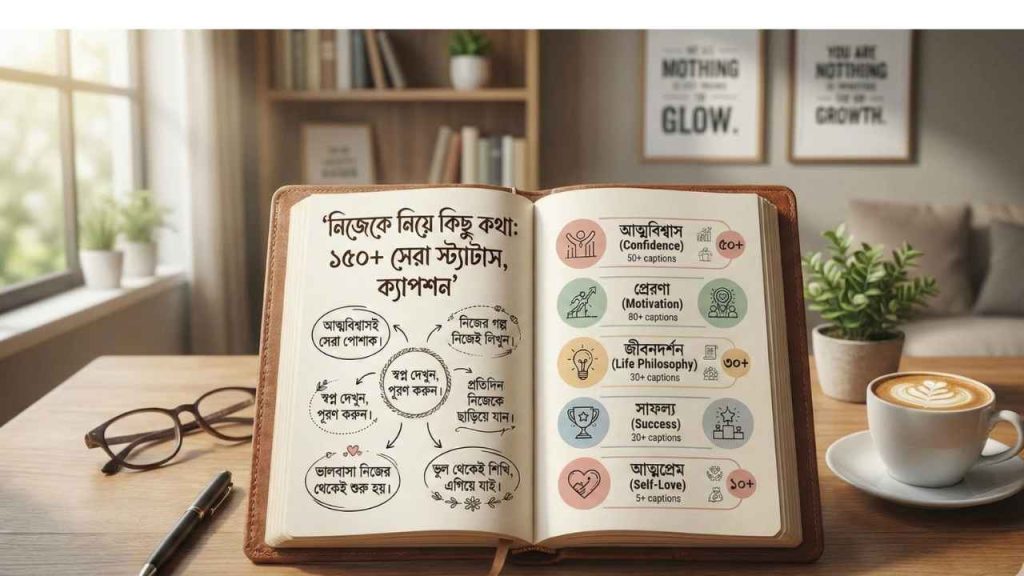 MOTHING
GLOW.
YOU ARE
NOTTHING
GROWTH.
‘নিজেকে নিয়ে কিছু কথা:
১৫০+ সেরা স্ট্যাটাস,
ক্যাপশন’
আত্মবিশ্বাসই
সেরা পোশাক।
নিজের গল্প
নিজেই লিখুন।
স্বপ্ন দেখুন,
পূরণ করুন।
স্বপ্ন দেখুন,
পূরণ করুন।
প্রতিদিন
নিজেকে
ছাড়িয়ে যান।
ভালবাসা নিজের
থেকেই শুরু হয়।
ভুল থেকেই শিখি,
এগিয়ে যাই।
আত্মবিশ্বাস
(Confidence)
50+ captions
৫০+
প্রেরণা
(Motivation)
80+ captions
জীবনদর্শন
(Life Philosophy)
30+ captions
৩০+
সাফল্য
(Success)
30+ captions
আত্মপ্রেম
(Self-Love)
5+ captions
১০+